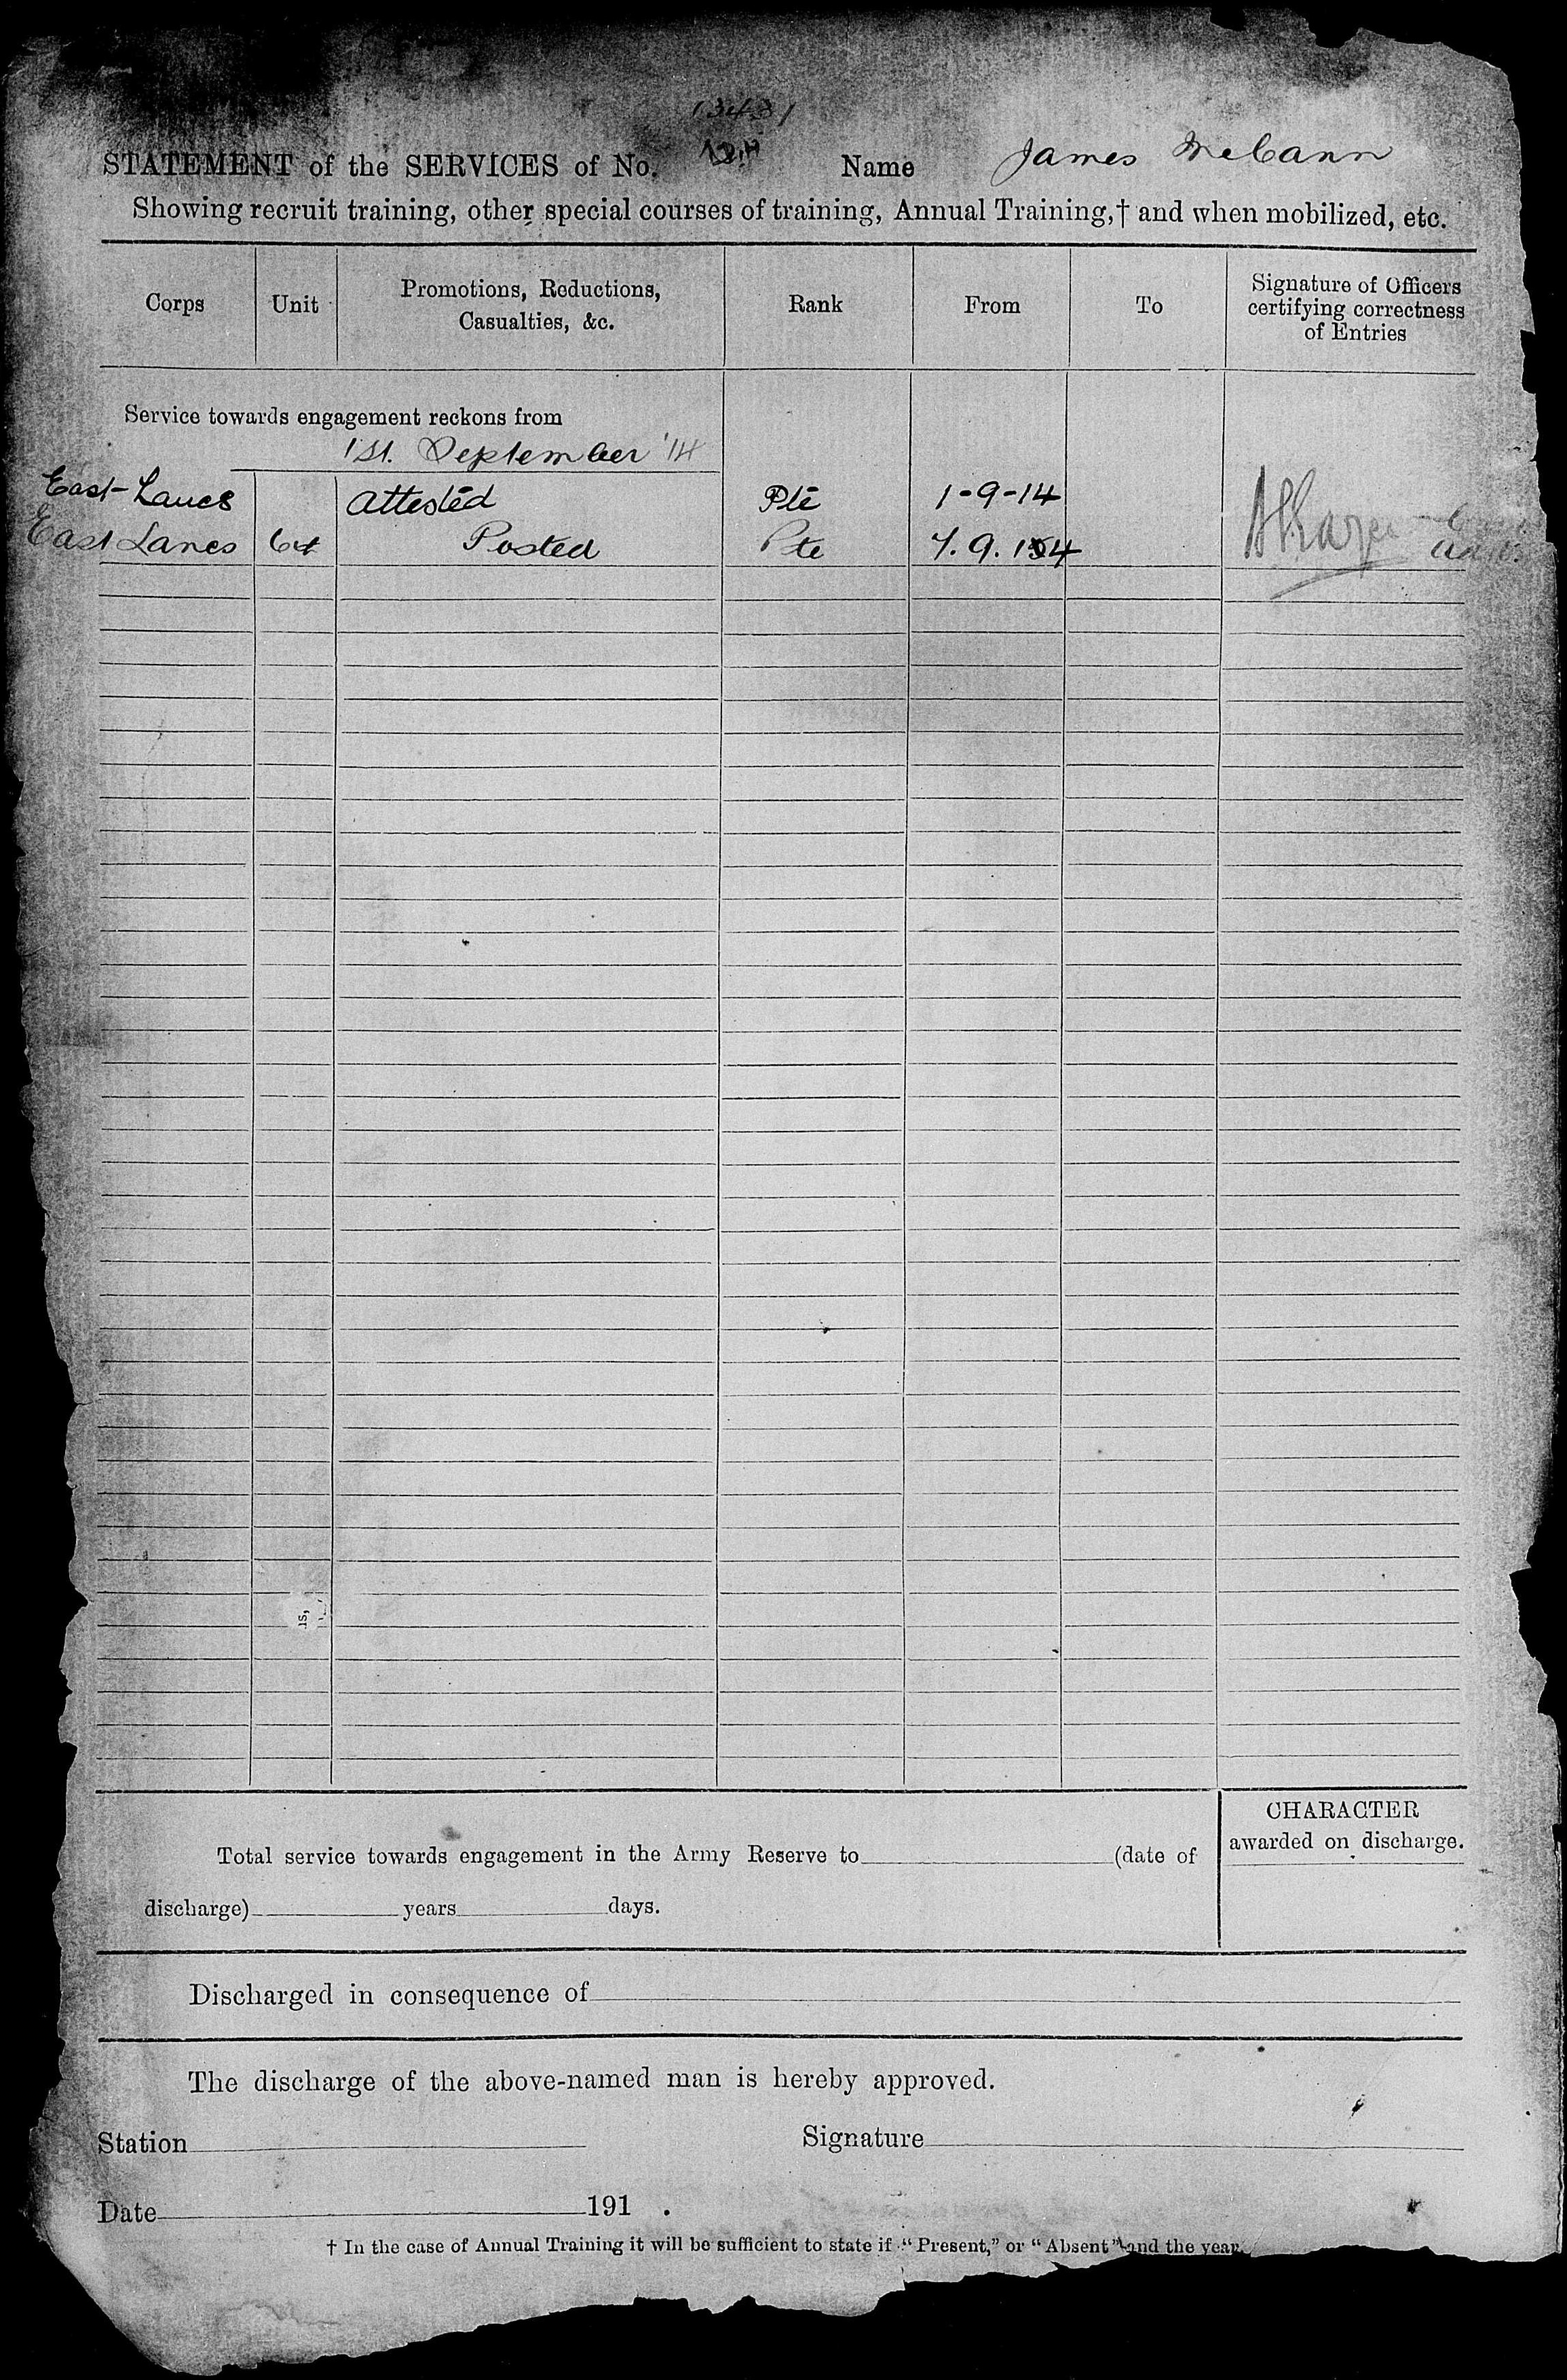 13431
STATEMENT of the SERVICES of No. Name James McCann
Showing recruit training, other special courses of training, Annual Training,† and when mobilized, etc.
Corps Unit Promotions, Reductions, Casualties, &c. Rank From To Signature of Officers certifying correctness of Entries
Service towards engagement reckons from
1st. September '14
East-Lancs Attested Pte 1-9-14
East Lancs 6th Posted Pte 7.9.14
Total service towards engagement in the Army Reserve to (date of
discharge) years days.
CHARACTER
awarded on discharge.
Discharged in consequence of
The discharge of the above-named man is hereby approved.
Station Signature
Date 191 .
† In the case of Annual Training it will be sufficient to state if "Present," or "Absent" and the year.